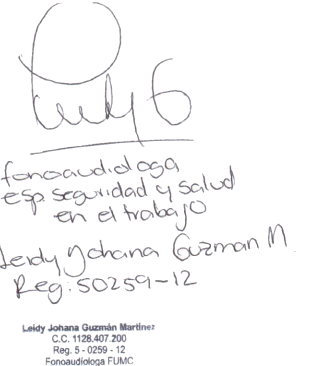 Leidy G
fonoaudiologa
esp. seguridad y salud
en el trabajo
Leidy Johana Guzman M.
Reg. 50259-12
Leidy Johana Guzmán Martinez
C.C. 1128.407.200
Reg. 5 - 0259 - 12
Fonoaudiologa FUMC